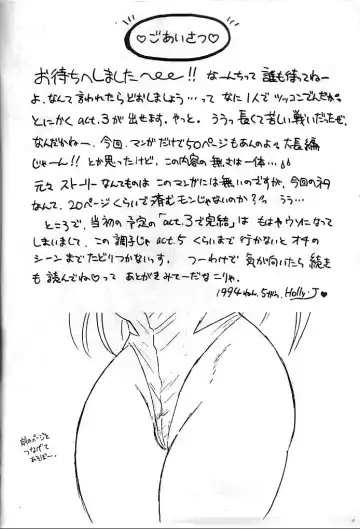 ♡ごあいさつ♡
お待ちへしましたへee!! なーんちって 誰も待ってねー
よ、なんて言われたらどおしましょう…って なに1人でツッコンでんだか。
とにかく act.3が出せます。やっと。ううっ長くて苦しい戦いだったぜ。
なんだかねー、今回、マンガだけで50ページもあんのよ。大長編
じゃーん!! とか思ったけど、この内容の無さは一体…
元々 ストーリーなんてものは このマンガには無いのですが、今回のネタ
なんて、20ページくらいで済むモンじゃないのか?っ うう…
ところで、当初の予定の「act.3で完結」は もはやウソになって
しまいまして、この調子じゃ act.5 くらいまで 行かないと オチの
シーンまでたどりつかないっす。 つーわけで 気が向いたら 続き
も 読んでね♡って あとがきみてーだなこりゃ。
1994 Holly・J♥
前のページと
つなげて